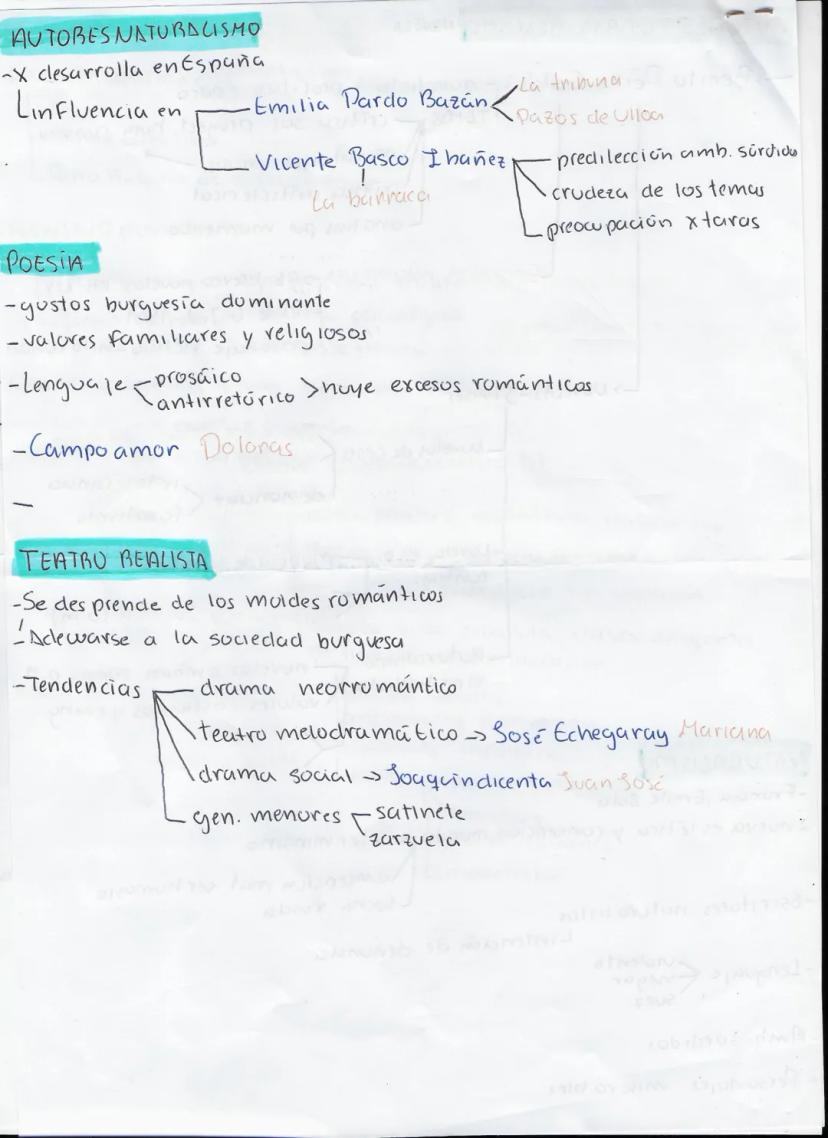 AUTORES NATURALISMO
-X desarrolla en España
Influencia en
Emilia Pardo Bazán
La tribuna
Pazos de Ulloa
Vicente Basco Ibañez
La barraca
predilección amb. sórdido
crudeza de los temas
preocupación x taras
POESÍA
-gustos burguesía dominante
-valores familiares y religiosos
-Lenguaje
prosáico
antirretórico
>huye excesos románticos
-Campoamor Doloras
-
TEATRO REALISTA
-Se desprende de los moldes románticos
-Adecuarse a la sociedad burguesa
-Tendencias
drama neorromántico
teatro melodramático → José Echegaray Mariana
drama social → Joaquín Dicenta Juan José
gen. menores
satinete
zarzuela